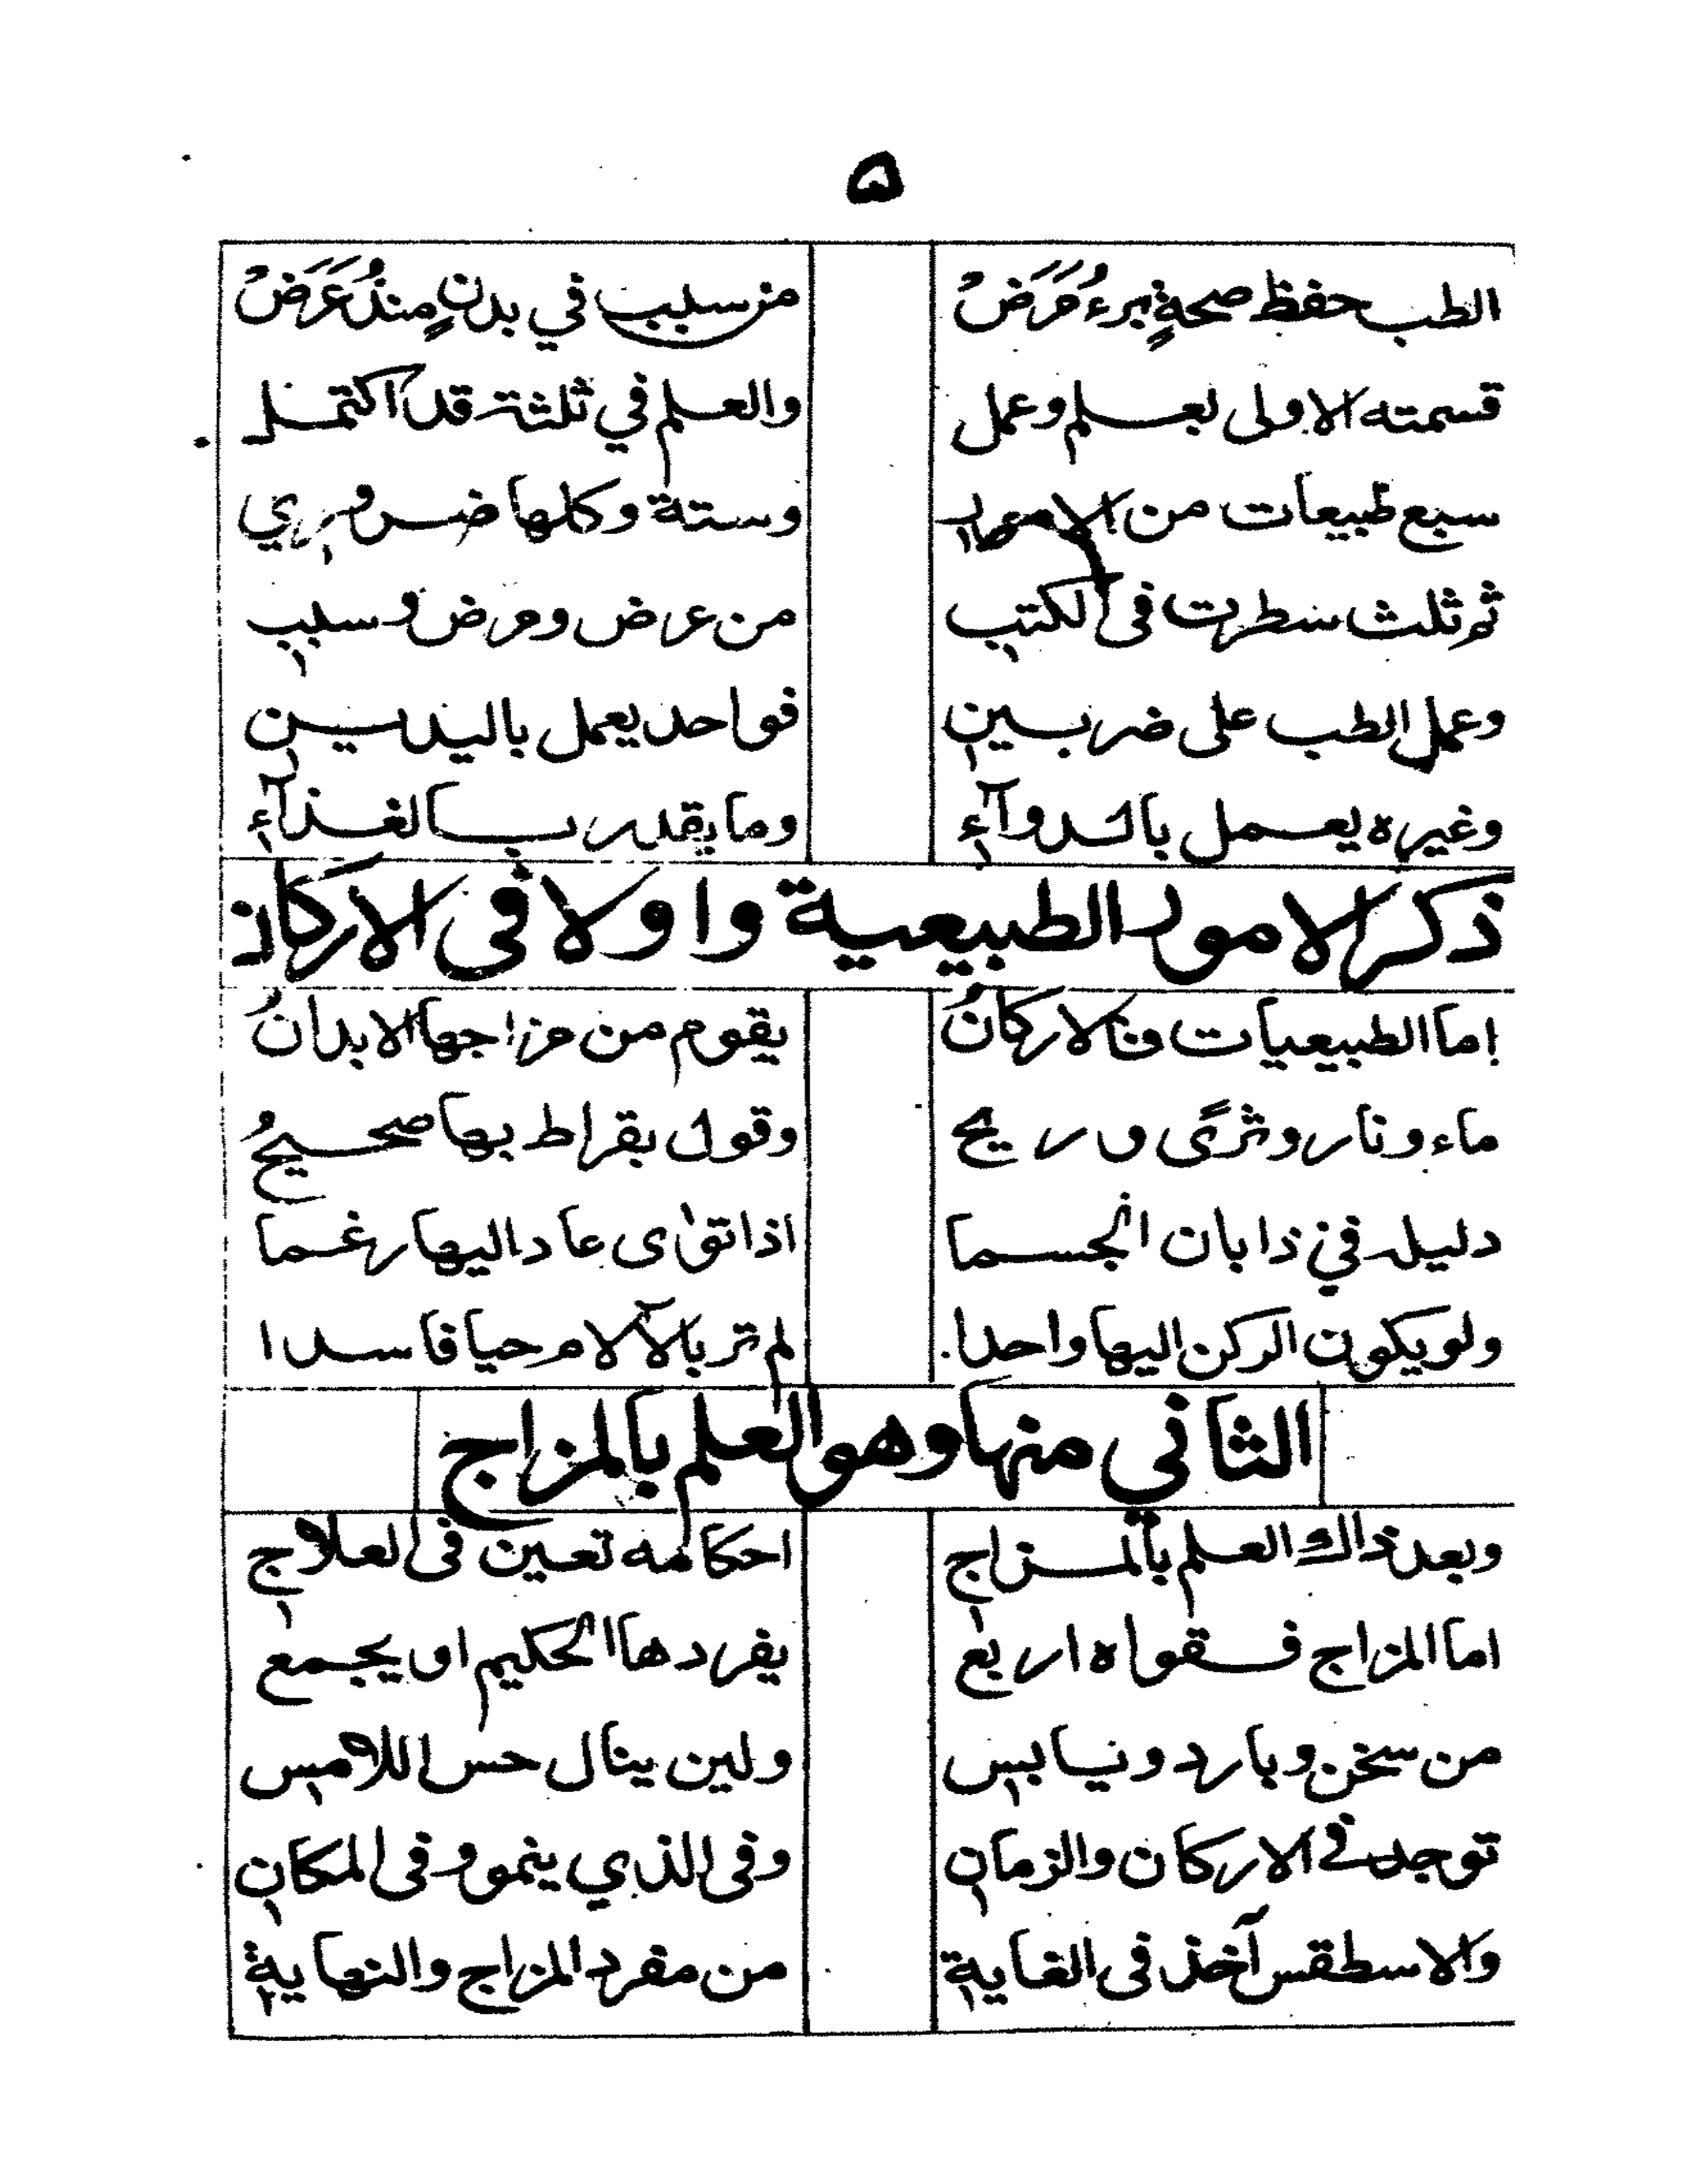 ۵
الطب حفظ صحةٍ برءُ مَرَضْ من سبب في بدنٍ منذُ عَرَضْ
قسمته الاولى لعلم وعمل والعلم في ثلثة قد اكتمل
سبع طبيعات من الامور وستة وكلها ضروري
ثم ثلث سطرت فى الكتب من عرض ومرض وسبب
وعمل الطب على ضربين فواحد يعمل باليدين
وغيره يعمل بالدوآءِ وما يقدر بالغذآءِ
ذكر الامور الطبيعية واولا فى الاركان
اما الطبيعيات فالاركانُ يقوم من مزاجها الابدانُ
ماء ونار وثرًى وريح وقول بقراط بها صحيحُ
دليله في ذا بان الجسما اذا توٰى عاد اليها رغما
ولو يكون الركن اليها واحدا لم تر بالآلام حيا فاسدا
الثاني منها وهو العلم بالمزاج
وبعد ذاك العلم بالمزاج احكامه تعين فى العلاج
اما المزاج فقواه اربع يفردها الحكيم او يجمع
من سخن وبارد ويابس ولين ينال حس اللامس
توجد فى الاركان والزمان وفى الذي ينمو وفى المكان
والاسطقس آخذ فى الغاية من مفرد المزاج والنهاية